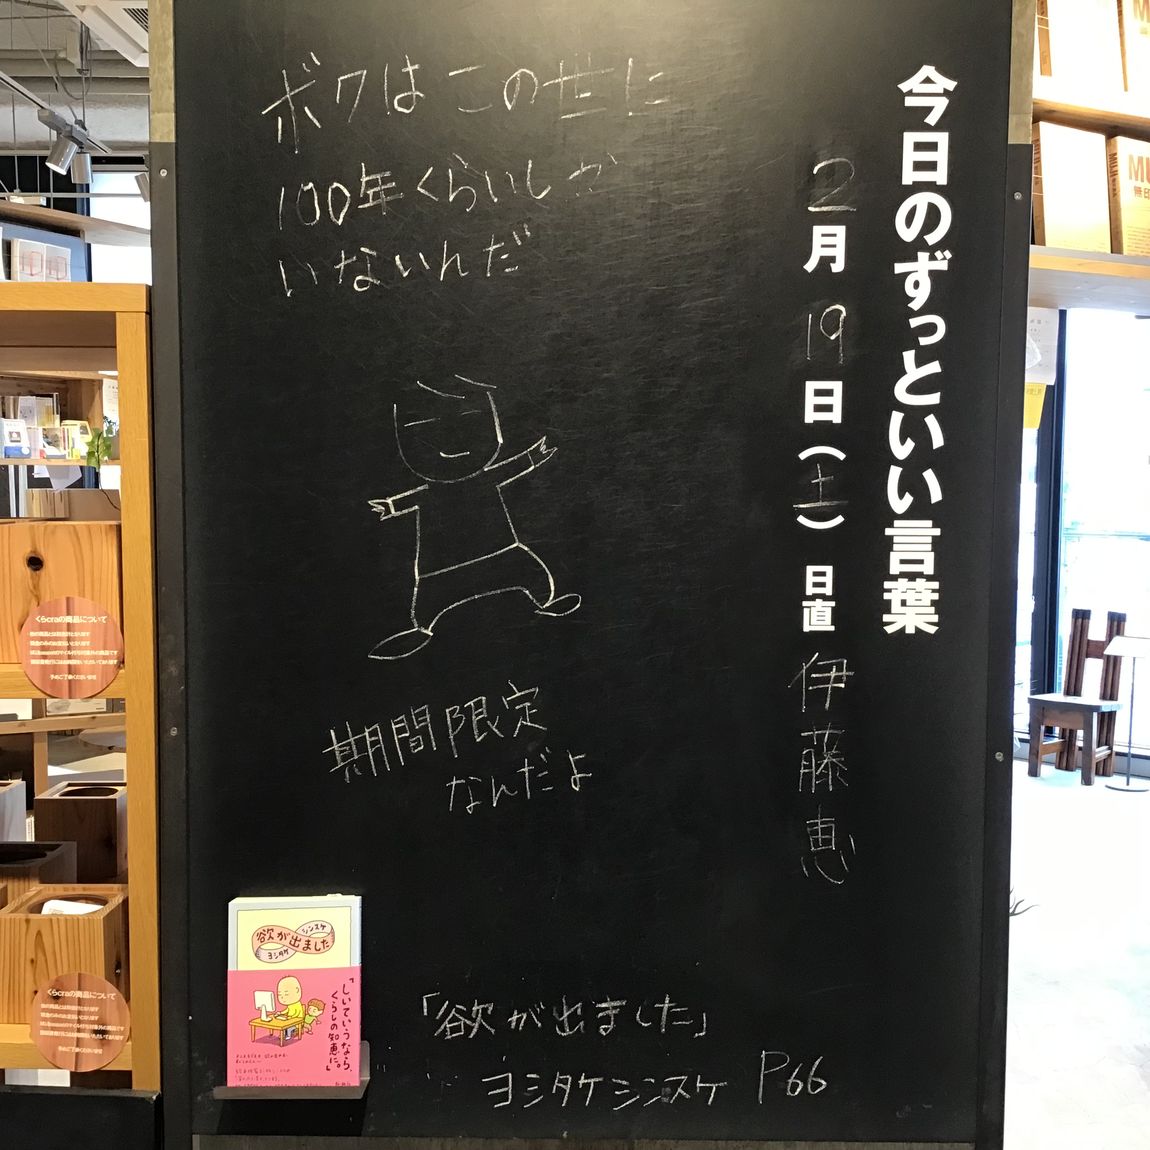 今日のずっといい言葉
2月19日(土)日直 伊藤恵
ボクはこの世に
100年くらいしか
いないんだ
期間限定
なんだよ
「欲が出ました」
ヨシタケシンスケ P66
欲が出ました
ヨシタケ
シンスケ
「しいていうなら、
くらしの知恵に。」
くらcraの商品について
予めご了承くださいませ
くらcraの商品について
予めご了承くださいませ
MU
無印